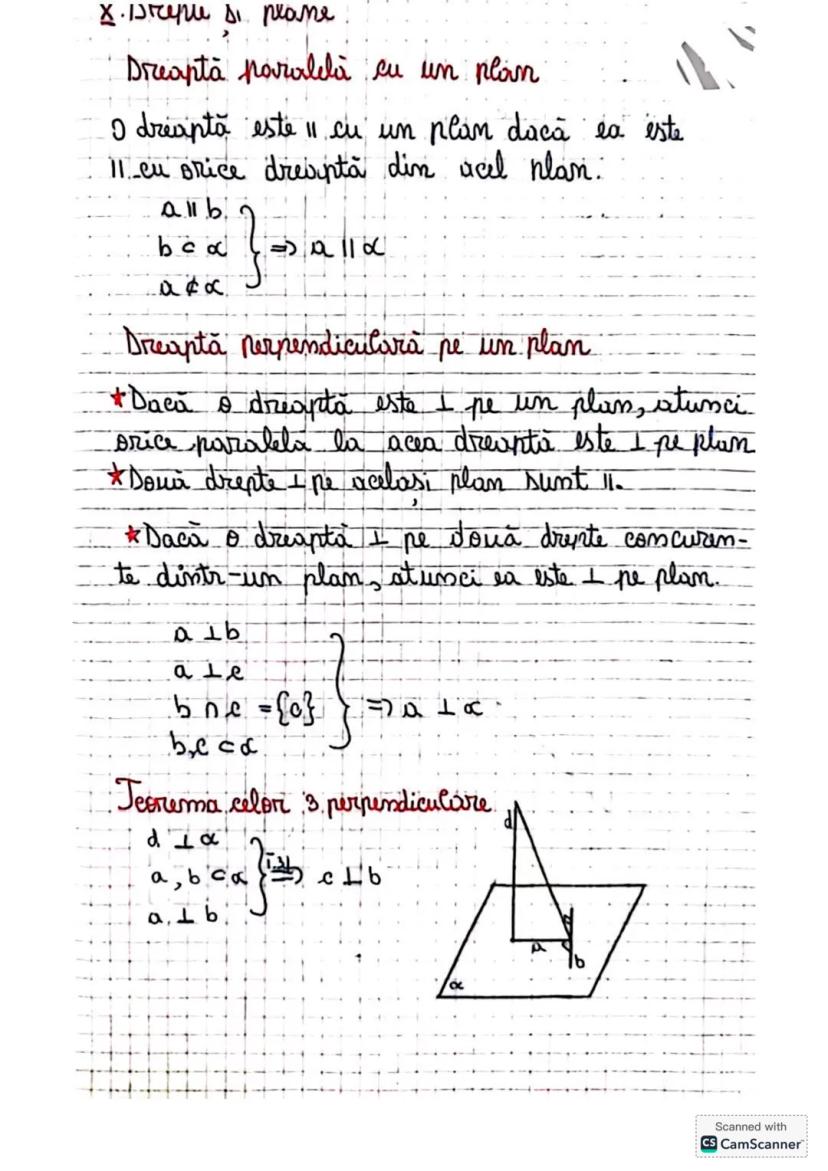 X. Drepte și plane
Dreaptă paralelă cu un plan
O dreaptă este || cu un plan dacă ea este
|| cu orice dreaptă din acel plan.
a || b
b ⊂ α } => a || α
a ⊄ α
Dreaptă perpendiculară pe un plan
★Dacă o dreaptă este ⊥ pe un plan, atunci
orice paralelă la acea dreaptă este ⊥ pe plan
★Două drepte ⊥ pe același plan sunt ||.
★Dacă o dreaptă ⊥ pe două drepte concuren-
te dintr-un plan, atunci ea este ⊥ pe plan.
a ⊥ b
a ⊥ c
b ∩ c = {o} } => a ⊥ α
b,c ⊂ α
Teorema celor 3 perpendiculare
d ⊥ α
a, b ⊂ α } => c ⊥ b
a ⊥ b
d
a
b
α
Scanned with
CS CamScanner